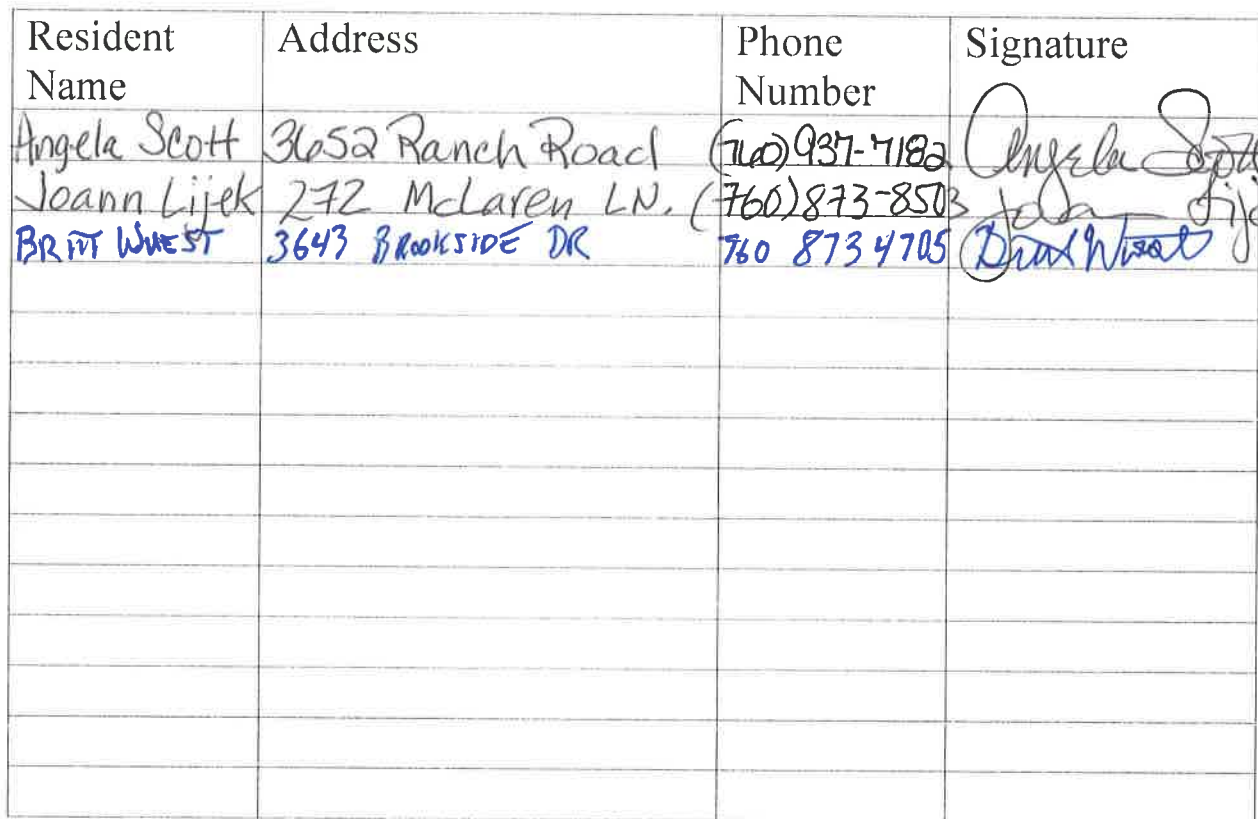 Resident Name Address Phone Number Signature
Angela Scott 3652 Ranch Road (760) 937-7182 Angela Scott
Joann Lijek 272 McLaren LN. (760) 873-8503
BRITT WUEST 3643 BROOKSIDE DR 760 873 4705